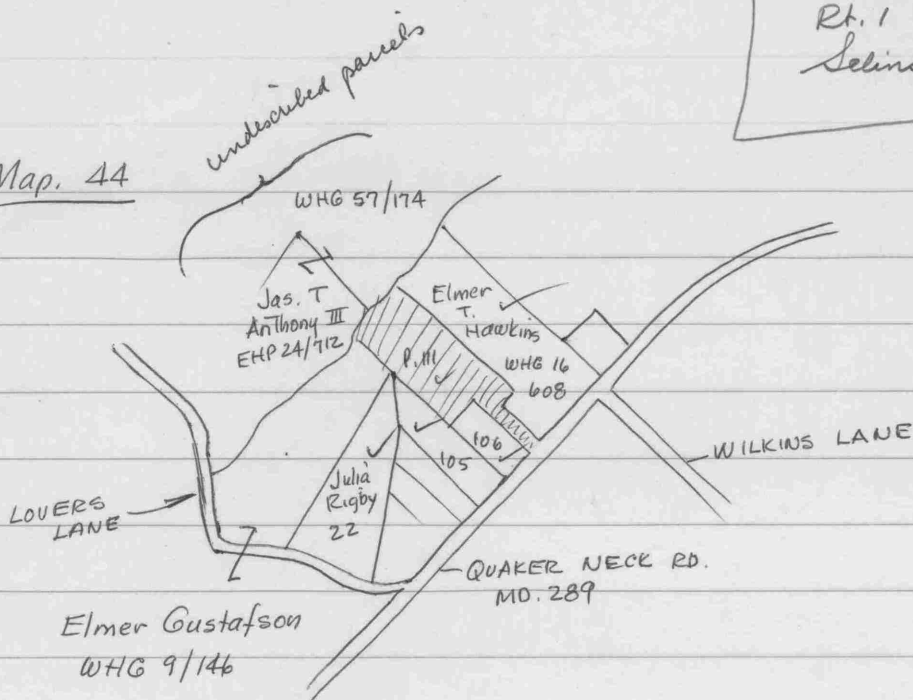 Rt. 1
undescribed parcels
Map. 44
WHG 57/174
Jas. T
Anthony III
EHP 24/712
Elmer
T.
Hawkins
WHG 16
608
P. 111
106
105
Julia
Rigby
22
WILKINS LANE
LOVERS
LANE
QUAKER NECK RD.
MD. 289
Elmer Gustafson
WHG 9/146